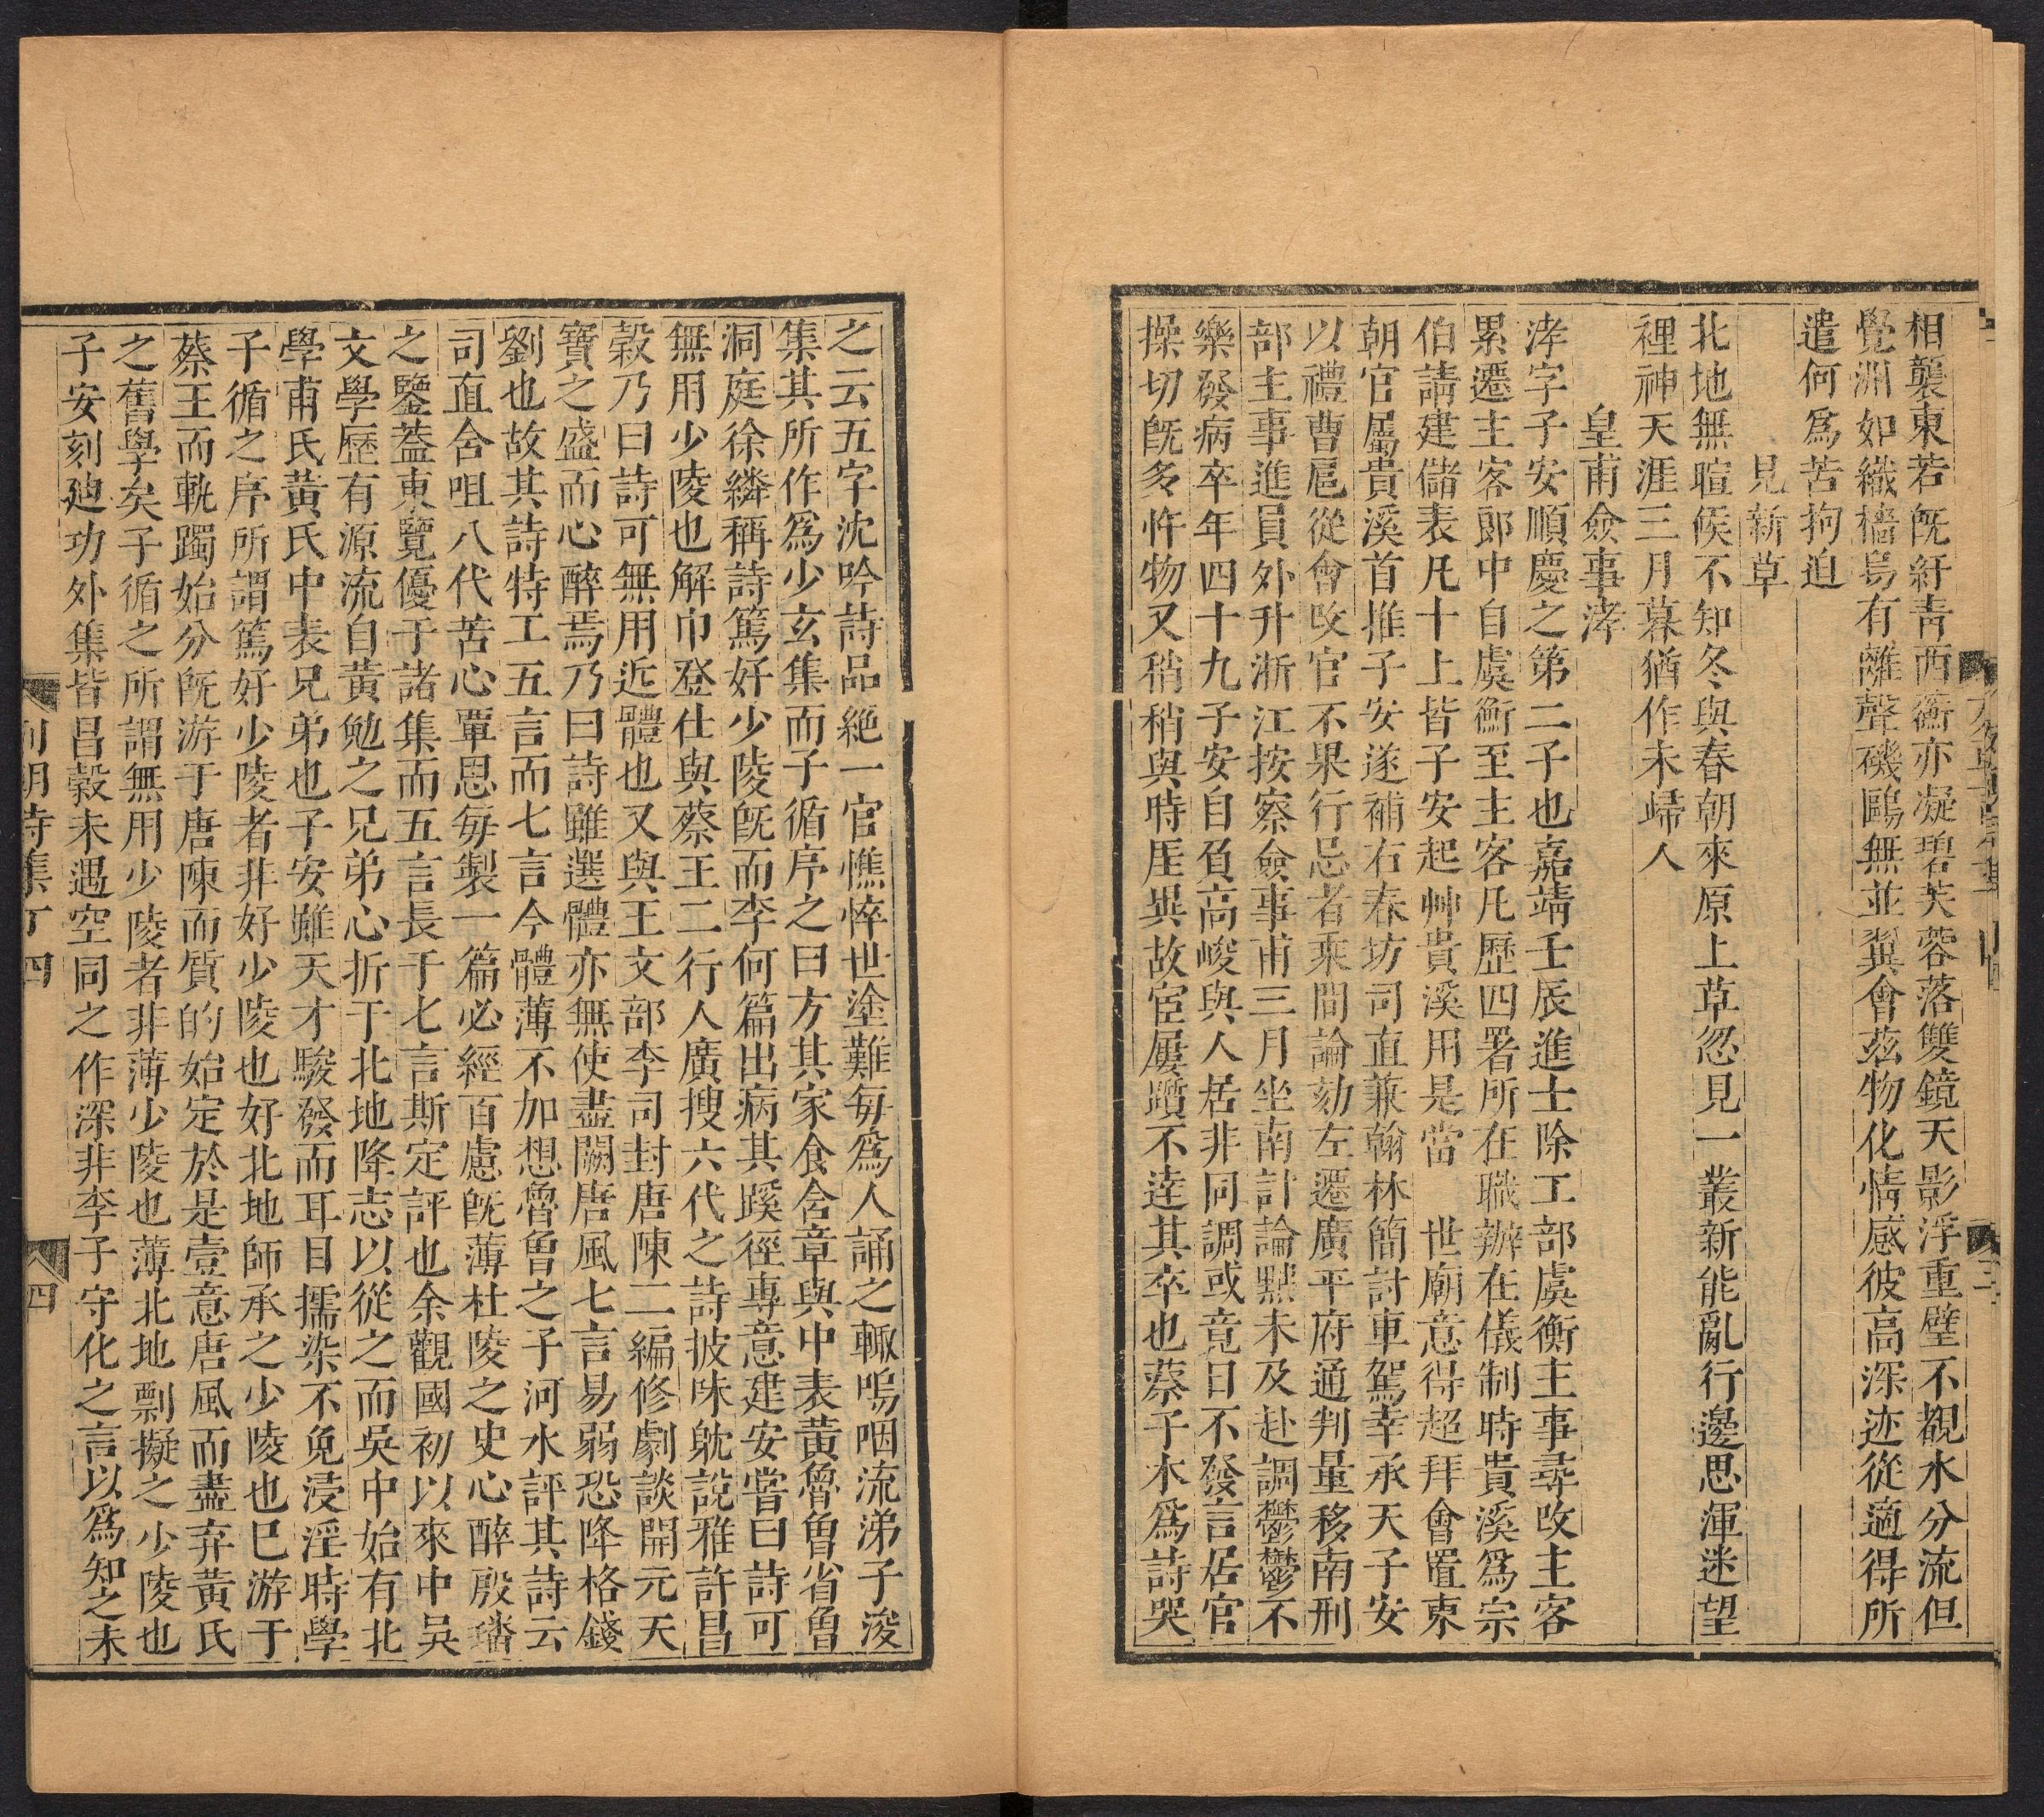 相襲東若旣紆靑西衞亦凝碧芙蓉落雙鏡天影浮重璧不覩水分流但
覺淵如織檣烏有離聲磯鷗無並翼會茲物化情感彼高深迹從適得所
遣何爲苦拘迫
見新草
北地無暄候不知冬與春朝來原上草忽見一叢新能亂行邊思渾迷望
裡神天涯三月暮猶作未歸人
皇甫僉事涍
涍字子安順慶之第二子也嘉靖壬辰進士除工部虞衡主事尋改主客
累遷主客郎中自虞衡至主客凡歷四署所在職辦在儀制時貴溪爲宗
伯請建儲表凡十上皆子安起艸貴溪用是當　世廟意得超拜會置東
朝官屬貴溪首推子安遂補右春坊司直兼翰林簡討車駕幸承天子安
以禮曹扈從會改官不果行忌者乘間論劾左遷廣平府通判量移南刑
部主事進員外升浙江按察僉事甫三月坐南計論黜未及赴調鬱鬱不
樂發病卒年四十九子安自負高峻與人居非同調或竟日不發言居官
操切旣多忤物又稍稍與時厓異故宦屢躓不達其卒也蔡子木爲詩哭
之云五字沈吟詩品絕一官憔悴世塗難每爲人誦之輒嗚咽流涕子浚
集其所作爲少玄集而子循序之曰方其家食含章與中表黃魯曾省曾
洞庭徐繗稱詩篤好少陵旣而李何篇出病其蹊徑專意建安嘗曰詩可
無用少陵也解巾登仕與蔡王二行人廣搜六代之詩披味躭說雅許昌
穀乃曰詩可無用近體也又與王文部李司封唐陳二編修劇談開元天
寶之盛而心醉焉乃曰詩雖選體亦無使盡闕唐風七言易弱恐降格錢
劉也故其詩特工五言而七言今體薄不加想魯曾之子河水評其詩云
司直含咀八代苦心覃思每製一篇必經百慮旣薄杜陵之史心醉殷璠
之鑒葢東覽優于諸集而五言長于七言斯定評也余觀國初以來中吳
文學歷有源流自黃勉之兄弟心折于北地降志以從之而吳中始有北
學甫氏黃氏中表兄弟也子安雖天才駿發而耳目擩染不免浸淫時學
子循之序所謂篤好少陵者非好少陵也好北地師承之少陵也巳游于
蔡王而軌躅始分旣游于唐陳而質的始定於是壹意唐風而盡弃黃氏
之舊學矣子循之所謂無用少陵者非薄少陵也薄北地剽擬之少陵也
子安刻廸功外集皆昌穀未遇空同之作深非李子守化之言以爲知之未
列朝詩集丁四
四